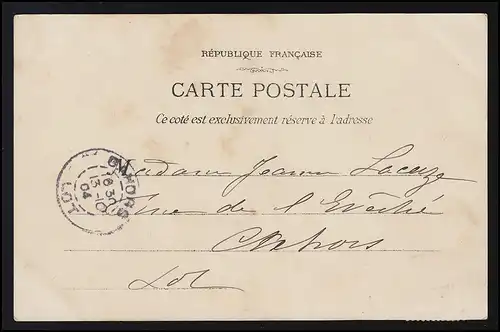 RÉPUBLIQUE FRANÇAISE
CARTE POSTALE
Ce coté est exclusivement réservé à l'adresse
CAHORS
6 30
13 -10
04
LOT
Madame Jeanne Lacuze
Rue de l'Evêché
Cahors
Lot